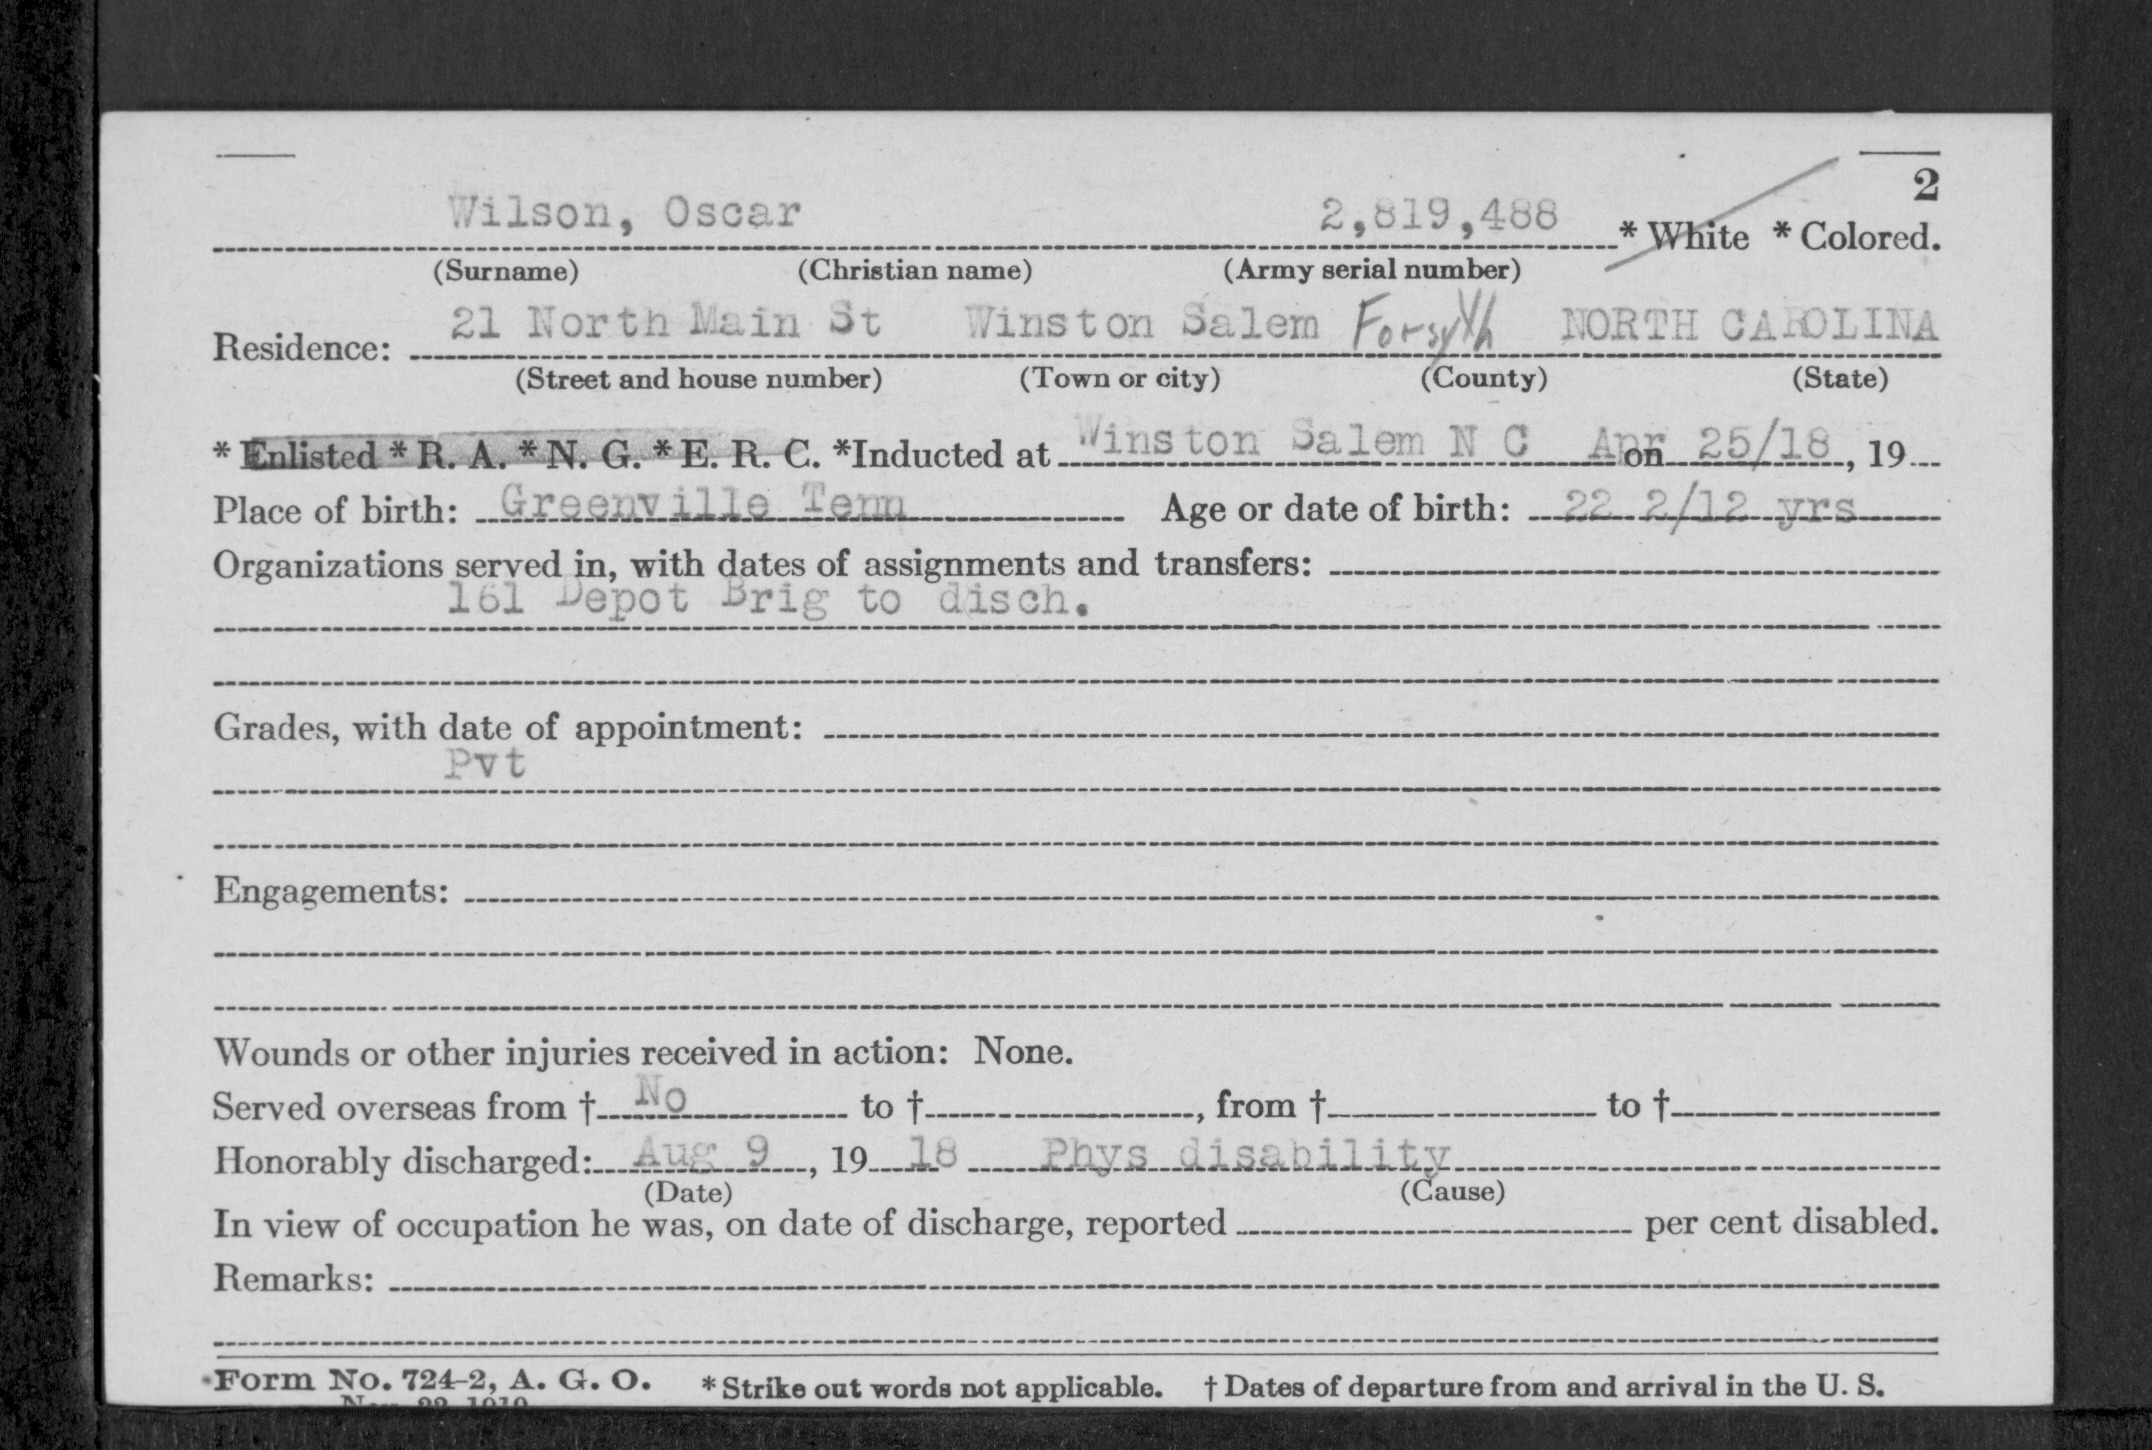 2
Wilson, Oscar 2,819,488 * White * Colored.
(Surname) (Christian name) (Army serial number)
Residence: 21 North Main St Winston Salem Forsyth NORTH CAROLINA
(Street and house number) (Town or city) (County) (State)
* Enlisted * R. A. * N. G. * E. R. C. *Inducted at Winston Salem N C Apr on 25/18, 19
Place of birth: Greenville Tenn Age or date of birth: 22 2/12 yrs
Organizations served in, with dates of assignments and transfers:
161 Depot Brig to disch.
Grades, with date of appointment:
Pvt
Engagements:
Wounds or other injuries received in action: None.
Served overseas from † No to †, from † to †
Honorably discharged: Aug 9, 19 18 Phys disability
(Date) (Cause)
In view of occupation he was, on date of discharge, reported per cent disabled.
Remarks:
Form No. 724-2, A. G. O. * Strike out words not applicable. † Dates of departure from and arrival in the U. S.